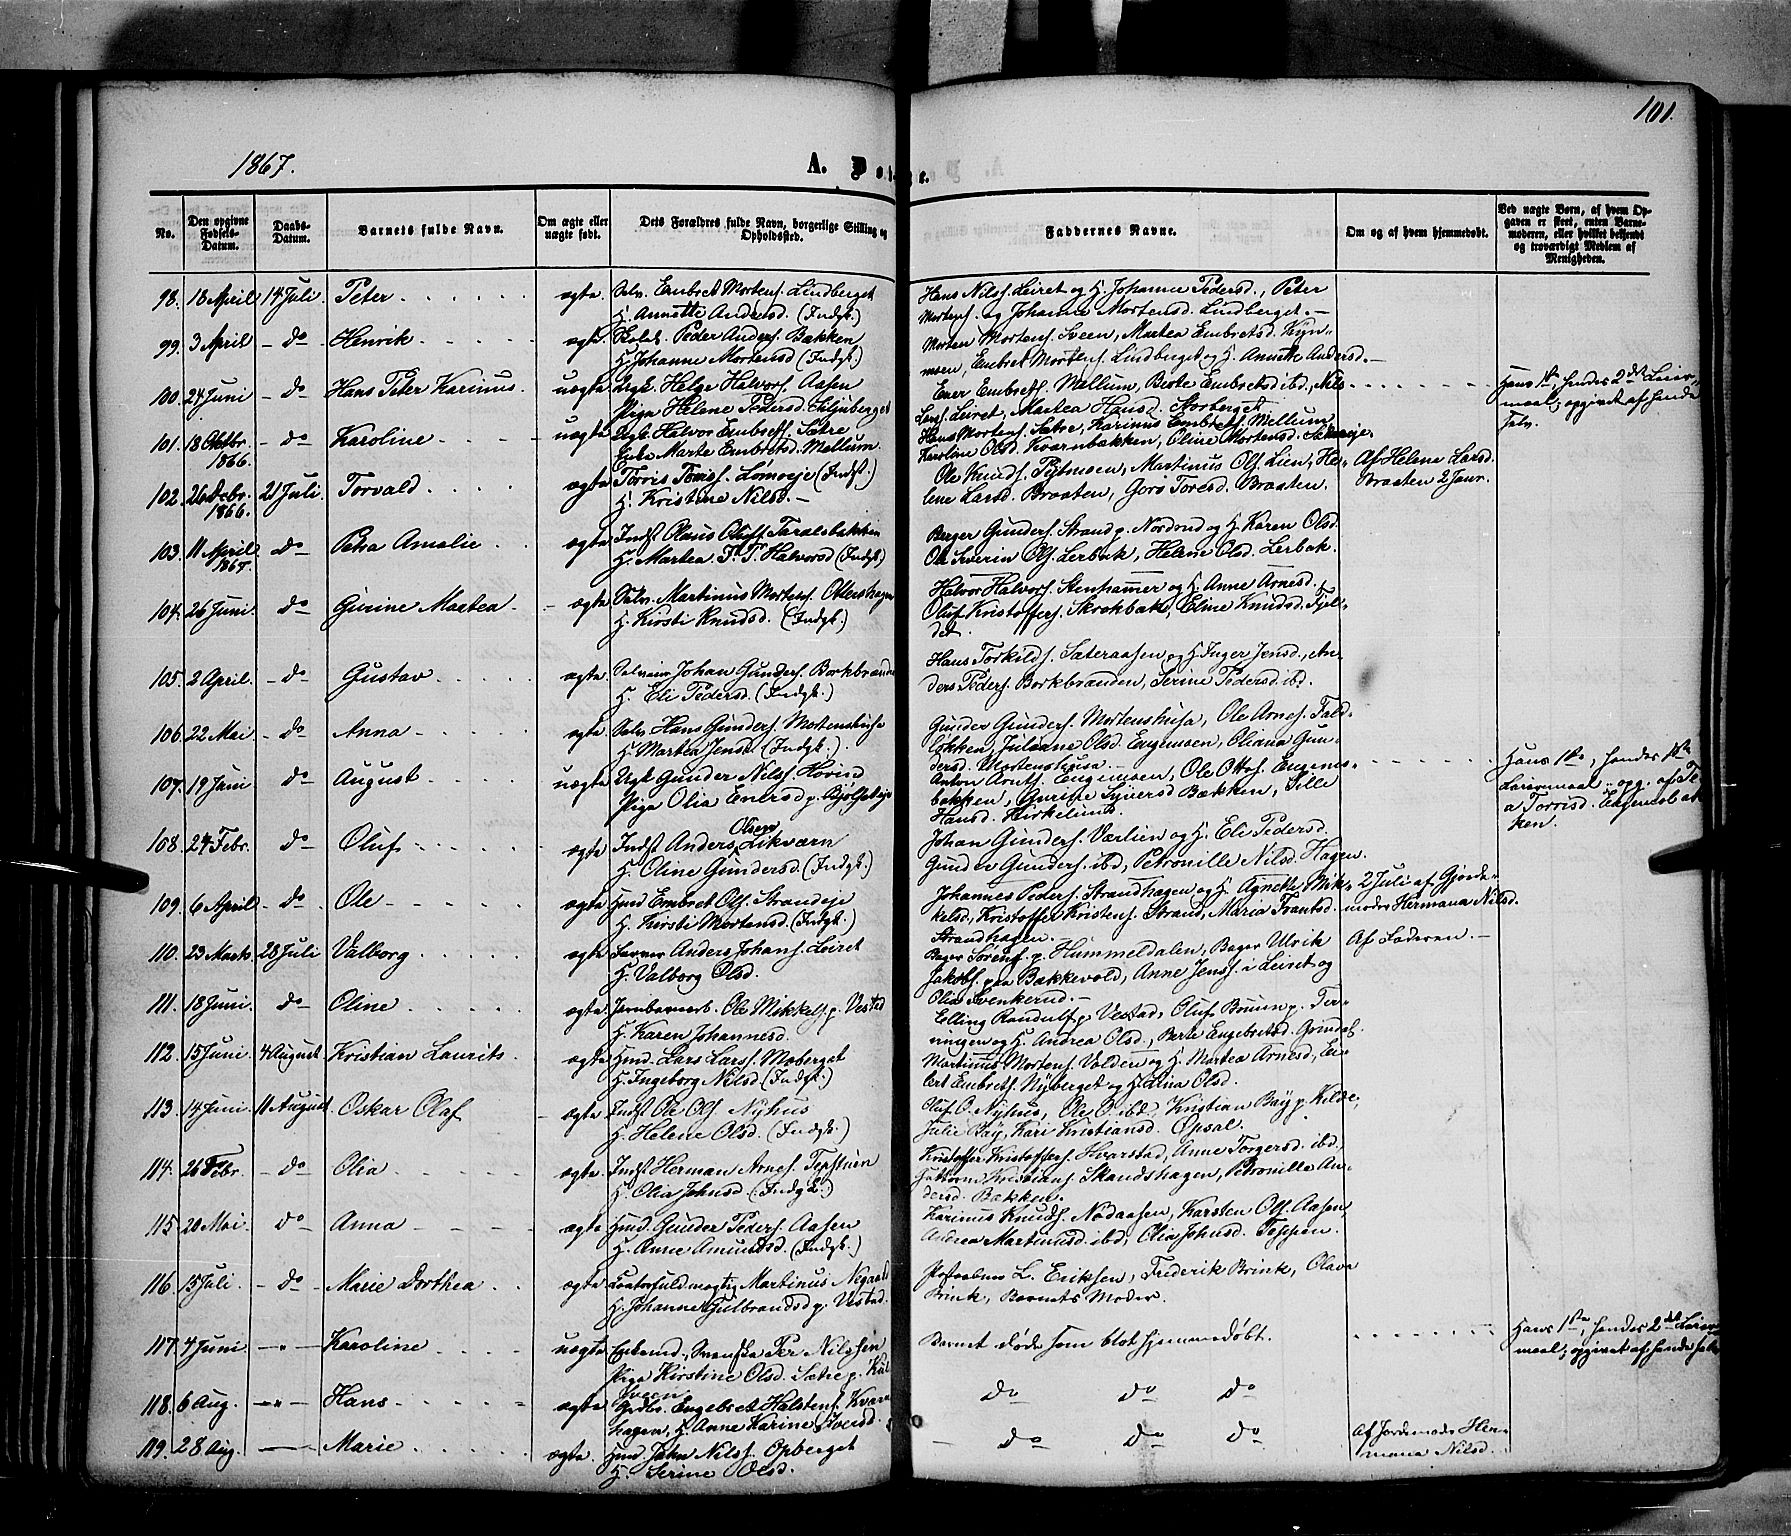 101.
1867.
A. D
No.
Den opgivne Fødsels-Datum.
Daabs-Datum.
Barnets fulde Navn.
Om ægte eller uægte født.
Dets Forældres fulde Navn, borgerlige Stilling og Opholdssted.
Faddernes Navne.
Om og af hvem hjemmedøbt.
Ved uægte Børn, af hvem Opgaven er skeet, enten Barnemoderen, eller hvilket bekjendt og troværdigt Medlem af Menigheden.
98. 18 April 14 Juli Peter ægte Selv. Embret Mortens. Lindberget
H. Annette Andersd. (Indgk.)
Hans Nilss. Leiret og H. Johanne Pedersd., Peter
Mortens. og Johanne Mortensd. Lindberget. —
99. 3 April — do Henrik ægte Peder Anders. Bakken
H. Johanne Mortensd (Indgk.)
Morten Mortens. Sveen, Martea Embretsd. Kyn-
moen, Embret Mortens. Lindberget og H. Annette Andersd. —
100. 24 Juni — do Hans Peter Karinus uægte Ungk. Helge Halvors. Aasen
Pige Helene Pedersd. Skjuberget
Ener Embrets. Mellum, Berte Embretsd ibd, Nils
Lars. Leiret, Martea Hansd. Storberget
Hans 1ste, hendes 2det Leier-
maal; opgivet af hende
selv.
101. 18 Oktbr. 1866. — do Karoline uægte Ungk. Halvor Embrets. Sætre
Enke Marte Embretsd. Mellum.
Hans Mortens. Sætre, Karinus Embrets. Mellum
Karoline Olsd. Kvernbakken, Oline Mortensd.
102. 26 Debr. 1866. 21 Juli Torvald ægte Torris Tomss. Lomoeje (Indgk.)
H. Kristine Nilsd. —
Ole Knuds. Pytmoen, Martinus Ols. Lien, He-
lene Larsd. Braaten, Goro Toresd. Braaten.
Af Helene Larsd.
Braaten 2 Janr.
103. 11 April 1867. do Petra Amalie ægte Indst Olaus Olufs. Taralsbakken
H. Martea F. T. Halvorsd (Indgk.)
Berger Gunders. Strand p. Nordrud og H. Karen Olsd.
Ole Severin Ols. Lerbak, Helene Olsd. Lerbak.
104. 26 Juni do Gurine Martea ægte Selv. Martinus Mortens. Otlershagen
H. Kirsti Knudsd. (Indgk.)
Halvor Halvors. Stenhamer og H. Anne Arnesd.
Oluf Kristoffers. Skrekbak, Eline Knudsd. Fjel-
det.
105. 2 April — do Gustav ægte Selveier Johan Gunders. Borkbranden
H. Eli Pedersd. (Indgk.)
Hans Torkilds. Sæteraasen og H. Inger Jensd., An-
ders Peders. Borkbranden, Serine Pedersd. ibd.
106. 22 Mai — do Anna ægte Selv. Hans Gunders. Mortenshusa
H. Martea Jensd. (Indgk.)
Gunder Gunders. Mortenshusa, Ole Arnes. Fald-
lökken, Juliane Olsd. Engemoen, Oliana Gun-
dersd. Mortenshusa. —
107. 19 Juni do August uægte Ungk. Gunder Nilss.
Pige Olia Enersd p.
Anton Arnts. Engemoen, Ole Ottos. Engems-
bakken, Gurine Syversd Bækken, Sille
Hansd. Kirkelund.
Hans 1ste, hendes 1ste
Leiermaal, opg. af Te-
a Torrisd. Engemsbak-
ken.
108. 24 Febr. do Oluf ægte Indst Anders Olsen Likværn
H. Oline Gundersd. (Indgk.)
Johan Gunders. Værlien og H. Eli Pedersd.
Gunder Gunders. ibd, Petronille Nilsd. Hagen.
109. 6 April do Ole ægte Hmd Embret Ols. Strandeje
H. Kirsti Mortensd. (Indgk.)
Johannes Peders. Strandhagen og H. Agnette Mik-
kelsd., Kristoffer Kristens. Strand, Marie Frantsd.
Strandhagen.
2 Juli af Gjorde-
moder Hermana Nilsd.
110. 23 Marts 28 Juli Valborg ægte Garver Anders Johans. Leiret
H. Valborg Olsd.
Bager Sørens. p. Hummeldalen, Bager Ulrik
Jakobs. paa Bakkevold, Anne Jenss. i Leiret og
Olia Svenkerud. —
Af Faderen. —
111. 18 Juni do Oline ægte Jernbanearb. Ole Mikkels. p. Vestad
H. Karen Johannesd.
Elling Randulf p Vestad, Oluf Bruun p. Ter-
ningen og H. Andrea Olsd., Berte Engebretsd. Grindal.
112. 15 Juni 4 August Kristian Laurits ægte Hmd. Lars Larss. Moberget
H. Ingeborg Nilsd (Indgk.)
Martinus Mortens. Volden og H. Martea Arnesd., Ei-
lert Embrets. Nyberget og H. Lina Olsd.
113. 14 Juni 11 August Oskar Olaf ægte Indst Ole Ols. Nyhus
H. Helene Olsd. (Indgk.)
Oluf O. Nyhus, Ole O. ibd, Kristian Bay p. Kilde,
Julie Bay, Kari Kristiansd. Opsal.
114. 26 Febr. — do Olia ægte Indst Herman Arnes. Tepstuen
H. Olia Johnsd (Indgk.)
Kristoffer Kristoffers. Hvarstad, Anne Torgersd. ibd,
Guttorm Kristians. Skandshagen, Petronille An-
dersd. Bækken.
115. 20 Mai do Anna ægte Hmd Gunder Peders. Aasen
H. Anne Amundsd. (Indgk.)
Karinus Knuds. Nødaasen, Karsten Ols. Aasen,
Andrea Martinusd. ibd, Olia Johnsd. Teppen.
116. 15 Juli — do Marie Dorthea ægte Kontorfuldmægtig Martinus Negaard
H. Johanne Gulbrandsd p. Vestad.
L. Eriksen, Frederik Brink, Olava
Brink, Barnets Moder.
117. 4 Juni — " — Karoline uægte Svenske Per Nilssen
Pige Kirstine Olsd. Sætre p.
Sveen
Barnet døde som blot hjemmedøbt.
Hans 1ste, hendes 2det Leier-
maal; opgivet af hende selv
118. 6 Aug. — " — Hans ægte Grdbr. Engebret Halstens. Kvarn
hagen, H. Anne Karine Iversd.
do do do
119. 28 Aug. — Marie ægte Hmd John Nilss. Opberget
H. Serine Olsd.
— do do do
Af Jordemoder Her-
mana Nilsd.